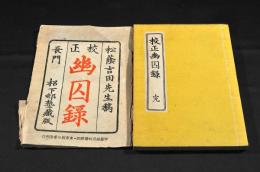 松蔭吉田先生稿
校正
幽囚録
長門
松下邨塾蔵版
校正幽囚録
完